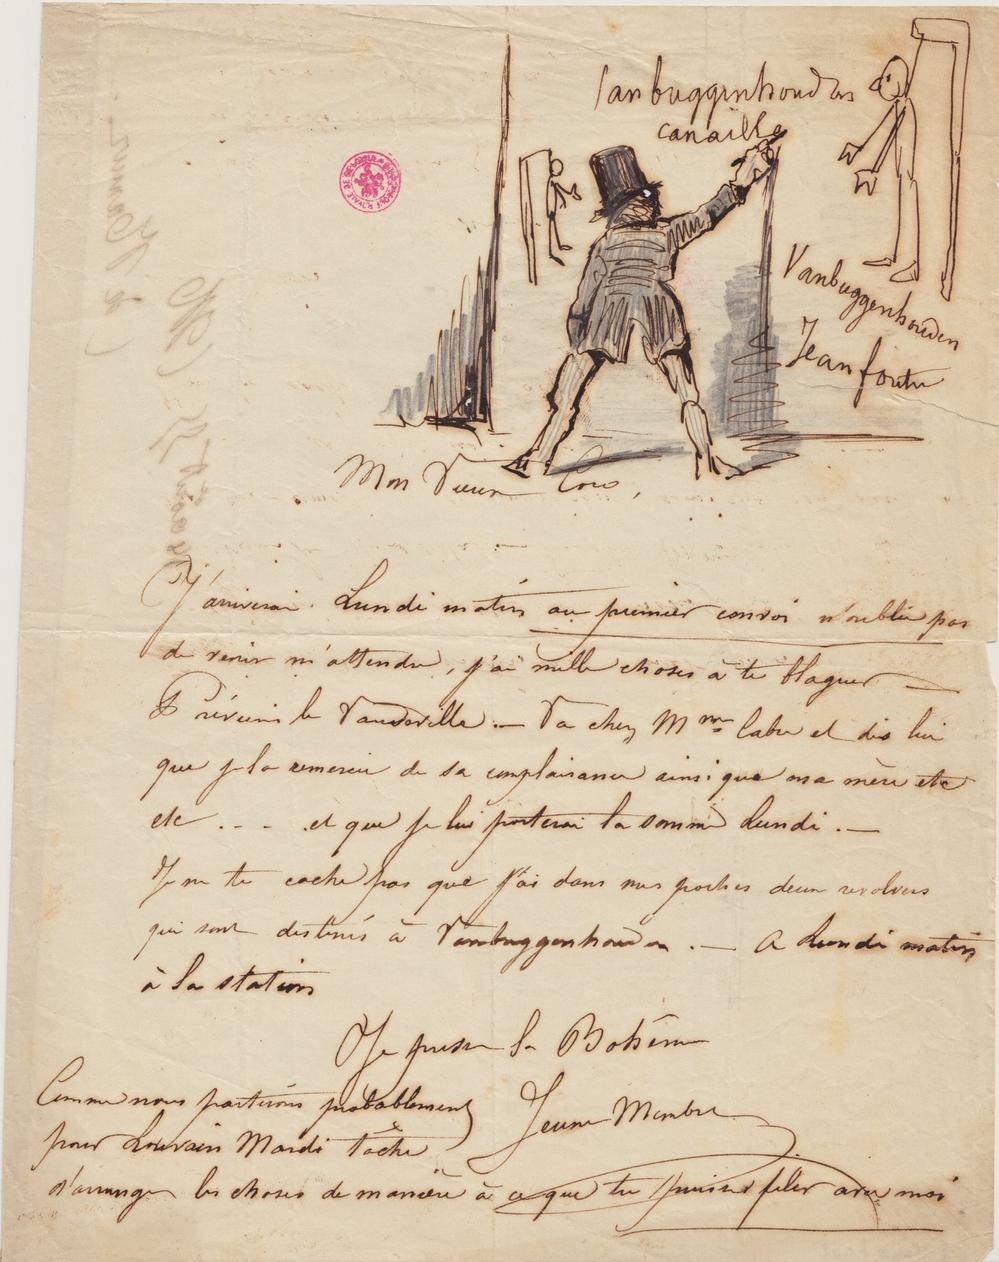 Vanbuggenhouden
canaille
Vanbuggenhouden
Jean foutre
Mon Vieux Coco,
J'arriverai Lundi matin au premier convoi n'oublie pas
de venir m'attendre, j'ai mille choses à te blaguer —
Préviens le Vaudeville. — Va chez Mme Cabre et dis lui
que je la remercie de sa complaisance ainsi que ma mère etc
etc . - - - et que je lui porterai la somme Lundi. —
Je ne te cache pas que j'ai dans mes poches deux revolvers
qui sont destinés à Vanbuggenhouden. — A Lundi matin
à la station
Je presse la Bohême
Jeune Membre
Comme nous partirons probablement
pour Louvain Mardi tâche
d'arranger les choses de manière à ce que tu puisses filer avec moi